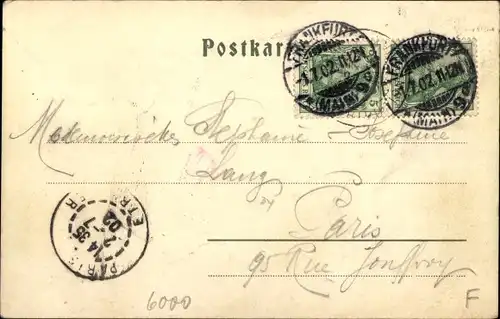 Postkar
FRANKFURT
-1.7.02.11-12N
(MAIN) 9
FRANKFURT
-1.7.02.11-12N
(MAIN) 9
Stephanie Josefine
Lang
Paris
95 Rue Jouffroy
PARIS
ETRANGER
6000
F